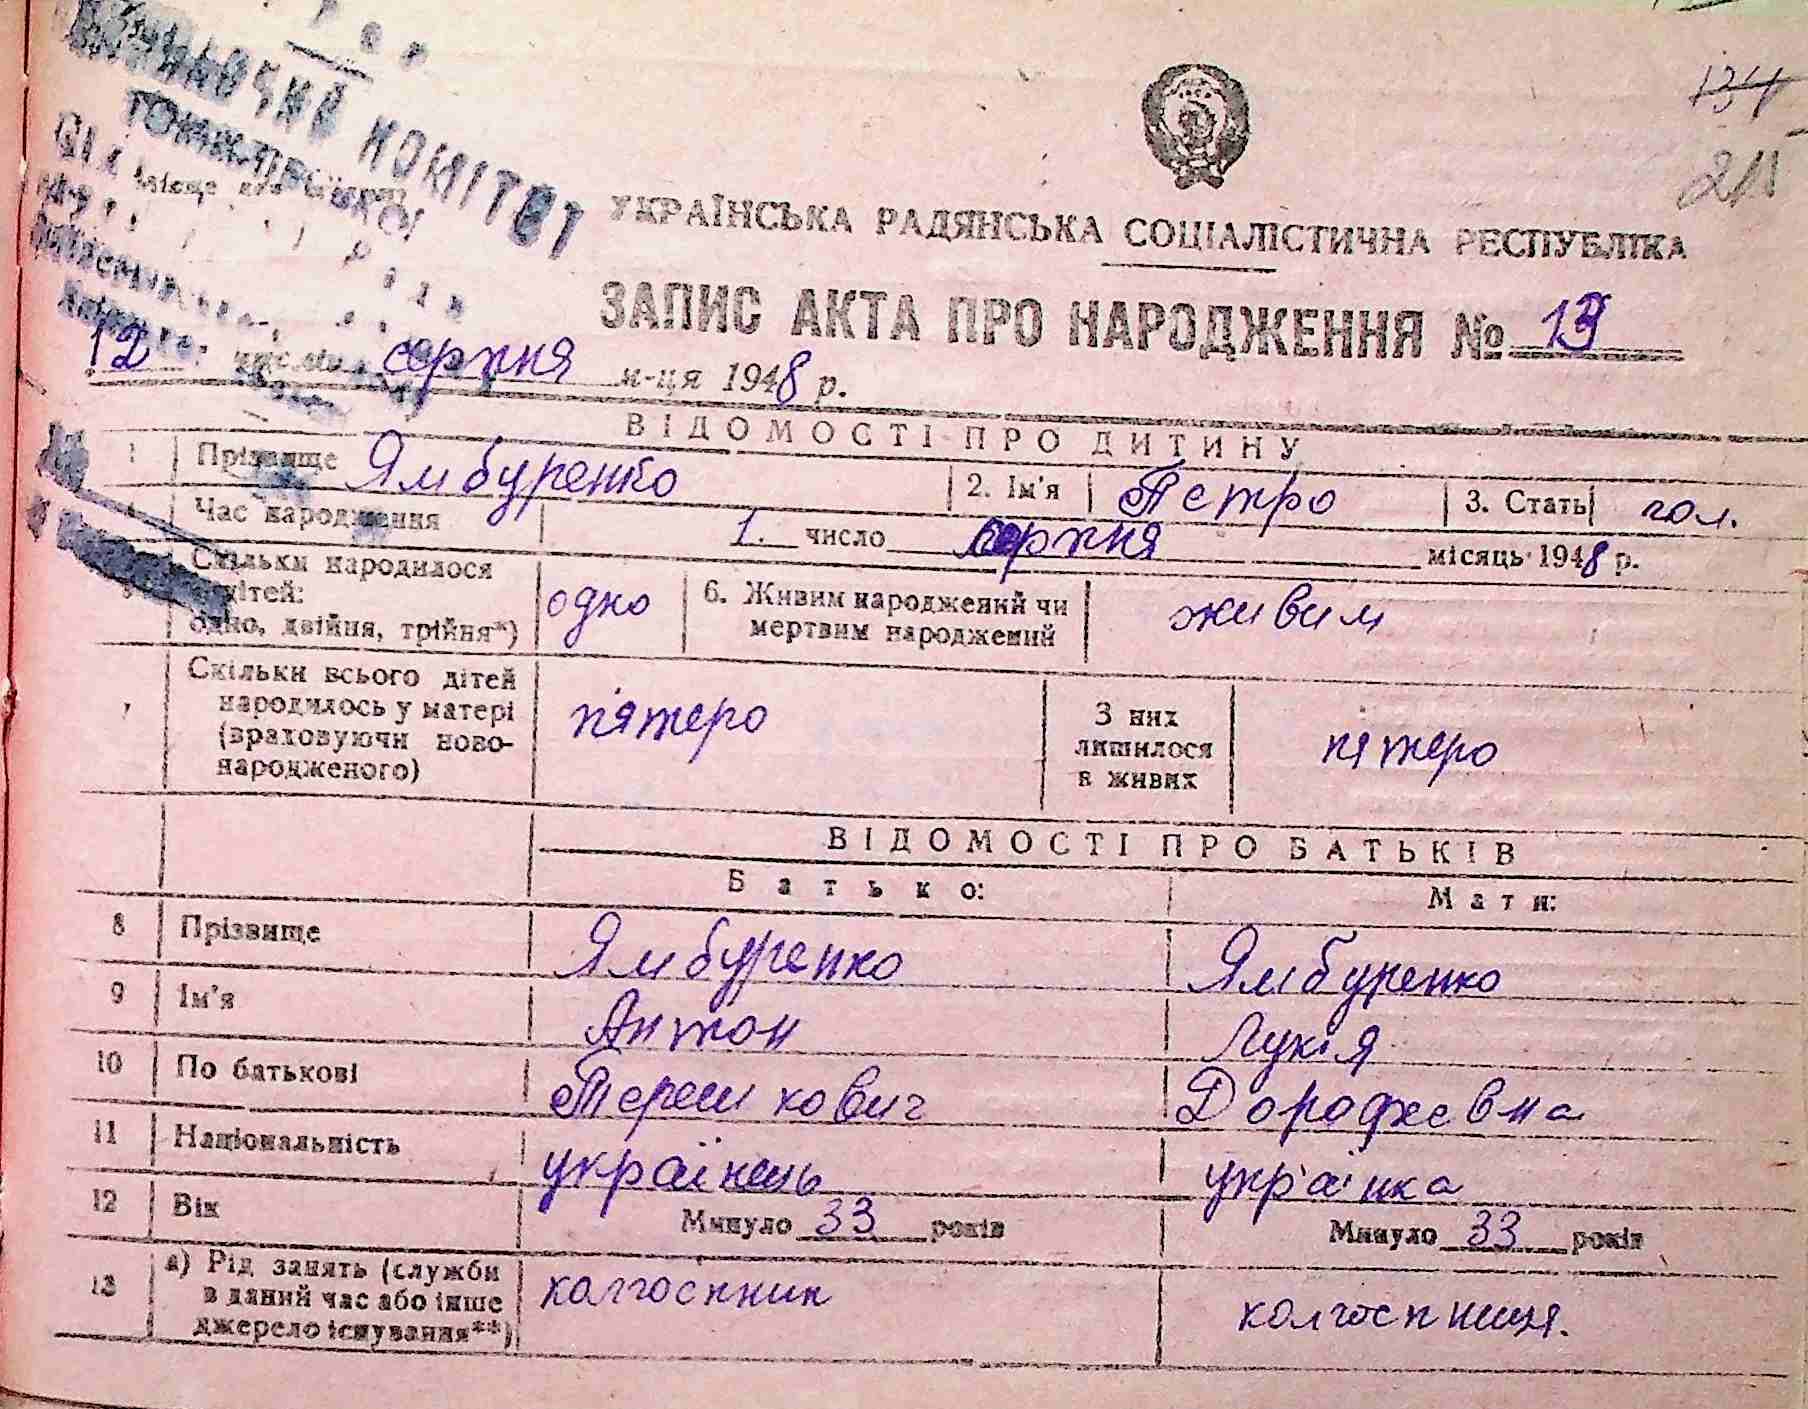 КОМІТЕТ
134
211
УКРАЇНСЬКА РАДЯНСЬКА СОЦІАЛІСТИЧНА РЕСПУБЛІКА
ЗАПИС АКТА ПРО НАРОДЖЕННЯ № 13
12 серпня м-ця 1948 р.
ВІДОМОСТІ ПРО ДИТИНУ
1 Прізвище Ямбуренко 2. Ім'я Петро 3. Стать чол.
4 Час народження 1. число серпня місяць 1948 р.
5 Скільки народилося дітей: одно, двійня, трійня*) одно 6. Живим народжений чи мертвим народжений живим
7 Скільки всього дітей народилось у матері (враховуючи новонародженого) п'ятеро З них лишилося в живих пятеро
ВІДОМОСТІ ПРО БАТЬКІВ
Батько: Мати:
8 Прізвище Ямбуренко Ямбуренко
9 Ім'я Антон Лукія
10 По батькові Терешкович Дорофєєвна
11 Національність українець українка
12 Вік Минуло 33 років Минуло 33 років
13 а) Рід занять (служби в даний час або інше джерело існування**) колгоспник колгоспниця.